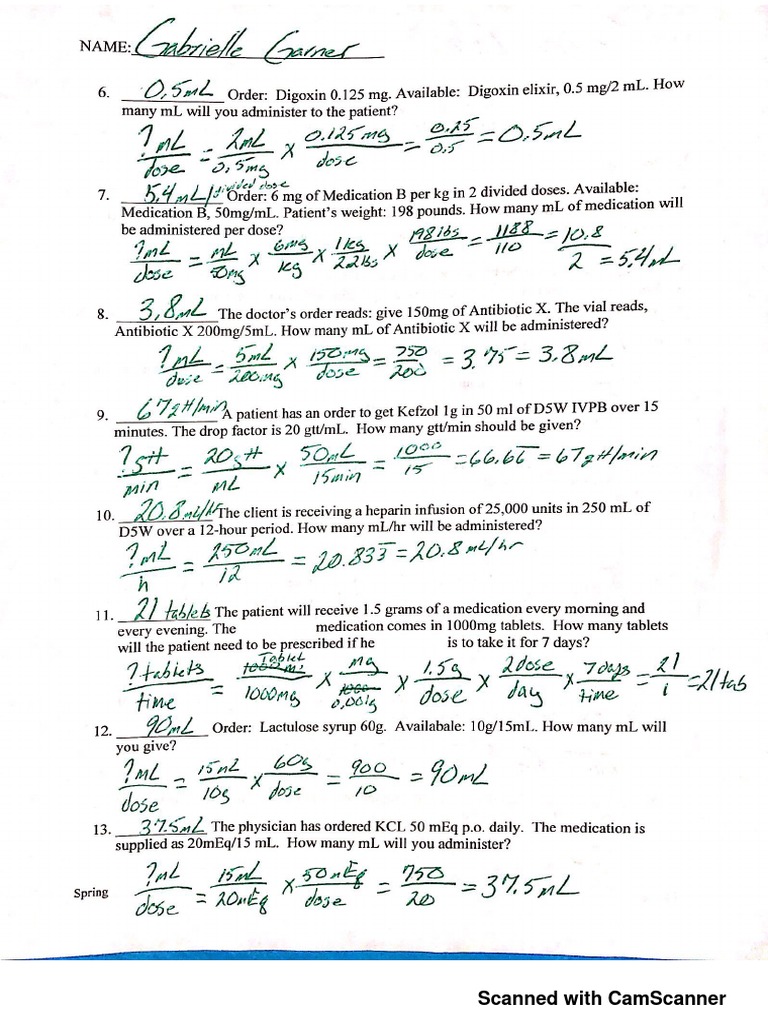 NAME: Gabrielle Garner
6. 0.5mL Order: Digoxin 0.125 mg. Available: Digoxin elixir, 0.5 mg/2 mL. How
many mL will you administer to the patient?
?mL/dose = 2mL/0.5mg x 0.125mg/dose = 0.25/0.5 = 0.5mL
7. 5.4mL/divided dose Order: 6 mg of Medication B per kg in 2 divided doses. Available:
Medication B, 50mg/mL. Patient's weight: 198 pounds. How many mL of medication will
be administered per dose?
?mL/dose = mL/50mg x 6mg/kg x 1kg/2.2lbs x 198lbs/dose = 1188/110 = 10.8/2 = 5.4mL
8. 3.8mL The doctor's order reads: give 150mg of Antibiotic X. The vial reads,
Antibiotic X 200mg/5mL. How many mL of Antibiotic X will be administered?
?mL/dose = 5mL/200mg x 150mg/dose = 750/200 = 3.75 = 3.8mL
9. 67gtt/min A patient has an order to get Kefzol 1g in 50 ml of D5W IVPB over 15
minutes. The drop factor is 20 gtt/mL. How many gtt/min should be given?
?gtt/min = 20gtt/mL x 50mL/15min = 1000/15 = 66.66 = 67gtt/min
10. 20.8mL/hr The client is receiving a heparin infusion of 25,000 units in 250 mL of
D5W over a 12-hour period. How many mL/hr will be administered?
?mL/h = 250mL/12 = 20.833 = 20.8mL/hr
11. 21 tablets The patient will receive 1.5 grams of a medication every morning and
every evening. The medication comes in 1000mg tablets. How many tablets
will the patient need to be prescribed if he is to take it for 7 days?
?tablets/time = Tablet/1000mg x mg/0.001g x 1.5g/dose x 2dose/day x 7days/time = 21/1 = 21tab
12. 90mL Order: Lactulose syrup 60g. Availabale: 10g/15mL. How many mL will
you give?
?mL/dose = 15mL/10g x 60g/dose = 900/10 = 90mL
13. 37.5mL The physician has ordered KCL 50 mEq p.o. daily. The medication is
supplied as 20mEq/15 mL. How many mL will you administer?
?mL/dose = 15mL/20mEq x 50mEq/dose = 750/20 = 37.5mL
Spring
Scanned with CamScanner